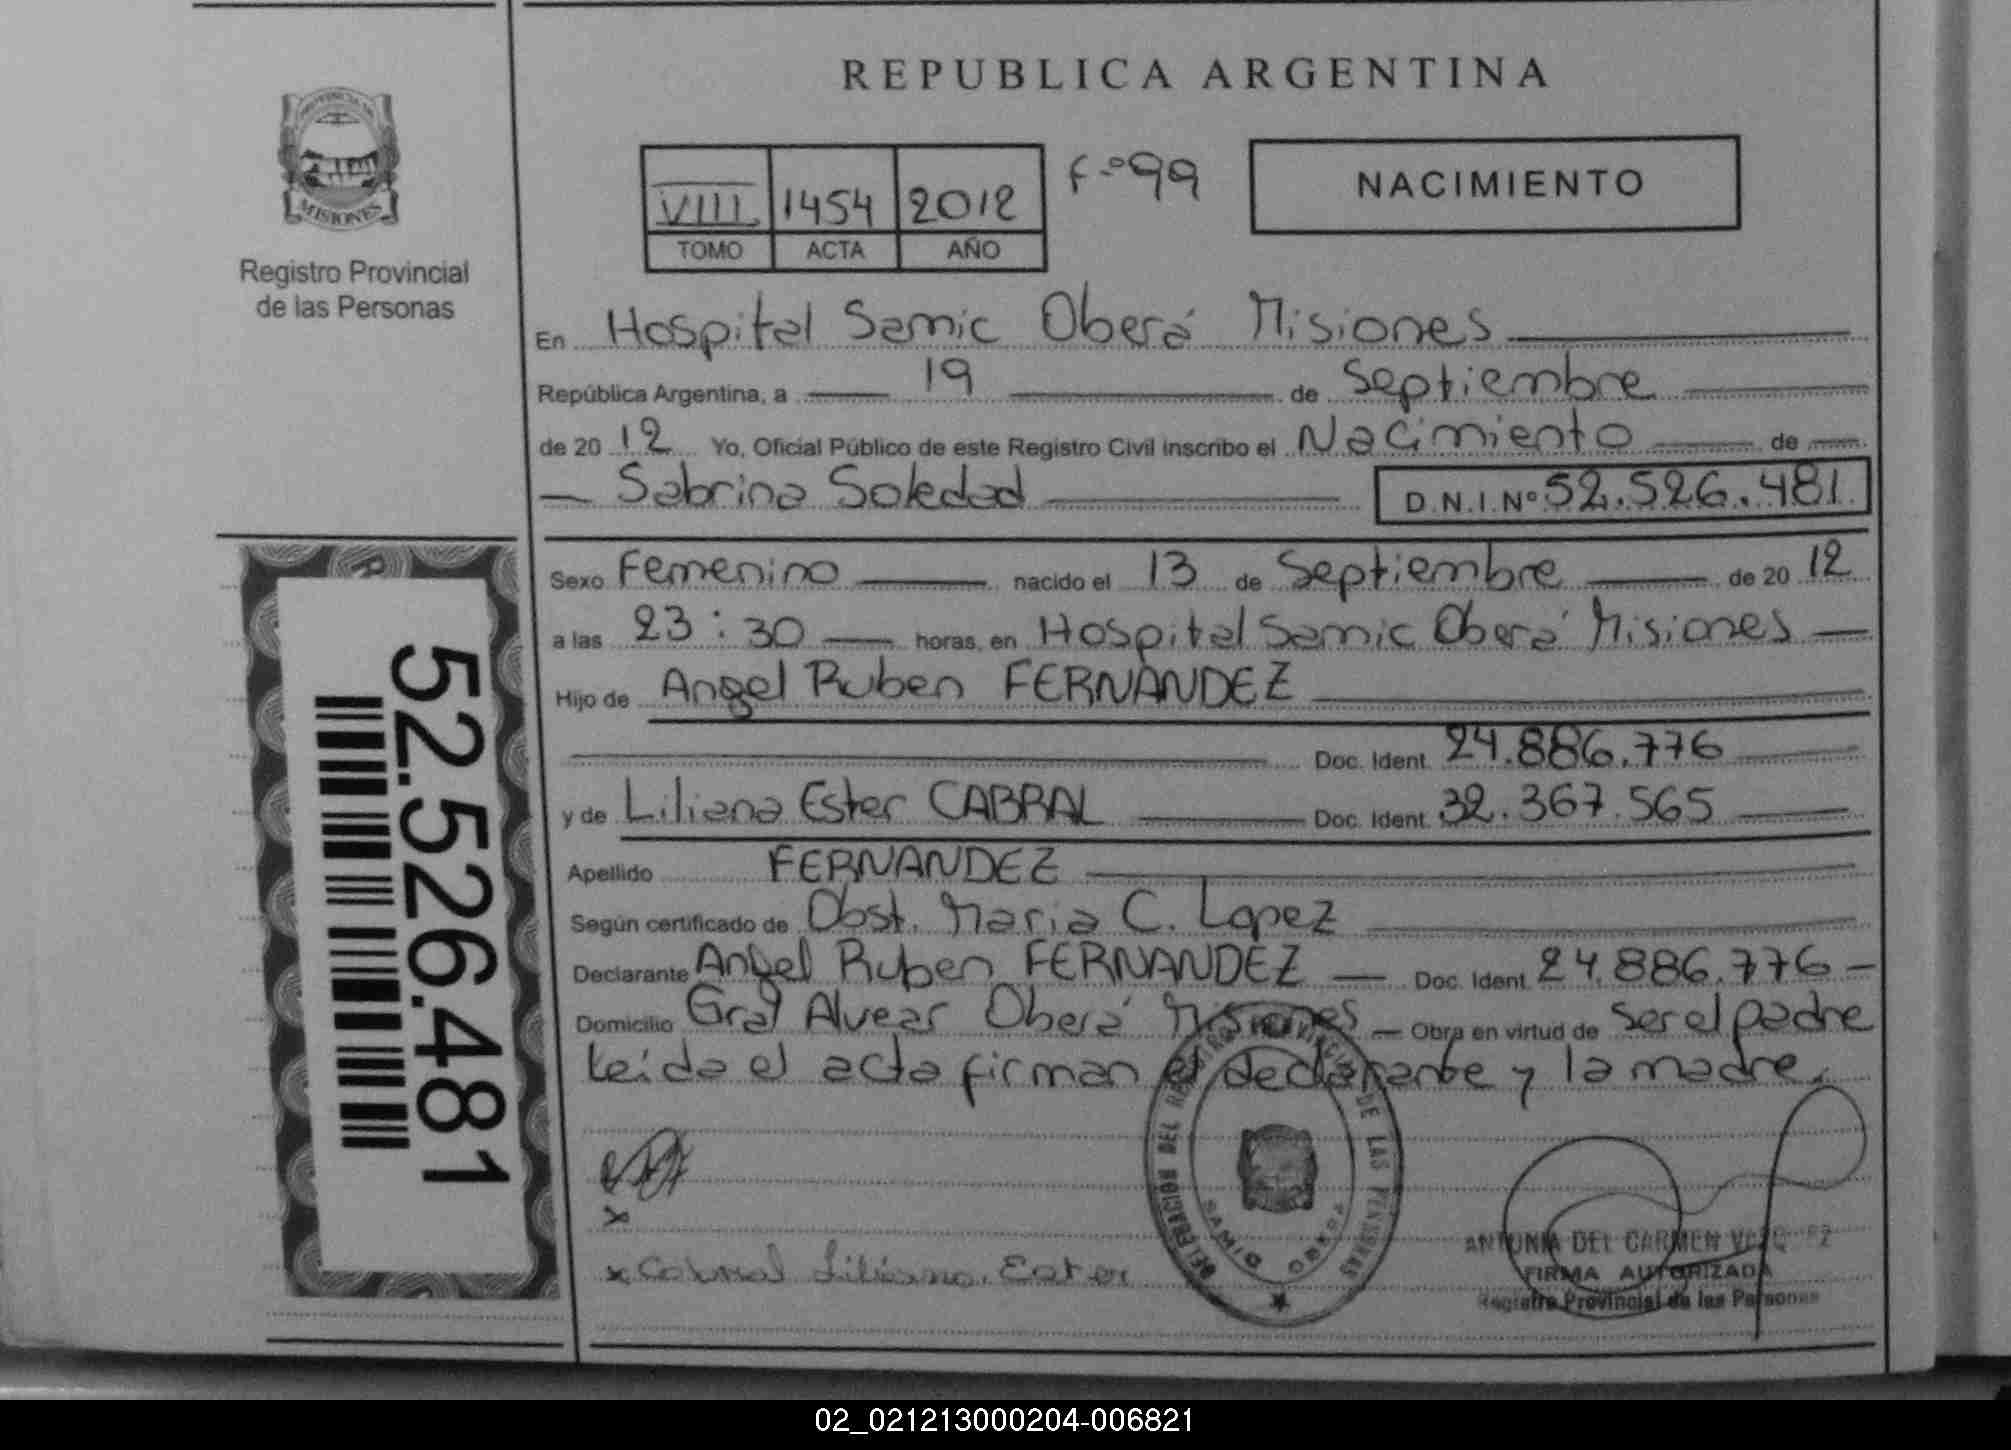 REPUBLICA ARGENTINA
PROVINCIA DE
MISIONES
Registro Provincial
de las Personas
VIII 1454 2012 Fº 99
TOMO ACTA AÑO
NACIMIENTO
En Hospital Samic Oberá Misiones
República Argentina, a 19 de Septiembre
de 2012 Yo, Oficial Público de este Registro Civil inscribo el Nacimiento de
Sabrina Soledad D.N.I.Nº 52.526.481
Sexo Femenino nacido el 13 de Septiembre de 2012
a las 23:30 horas, en Hospital Samic Oberá Misiones
Hijo de Angel Ruben FERNANDEZ
Doc. Ident. 24.886.776
y de Liliana Ester CABRAL Doc. Ident. 32.367.565
Apellido FERNANDEZ
Según certificado de Obst. Maria C. Lopez
Declarante Angel Ruben FERNANDEZ Doc. Ident. 24.886.776
Domicilio Gral Alvear Oberá Misiones Obra en virtud de ser el padre
Leída el acta firman el declarante y la madre.
52.526.481
x
x Cabral Liliana Ester
DELEGACION DEL REGISTRO PROVINCIAL DE LAS PERSONAS
SAMIC OBERA
ANTONIA DEL CARMEN
FIRMA AUTORIZADA
Registro Provincial de las Personas
02_021213000204-006821